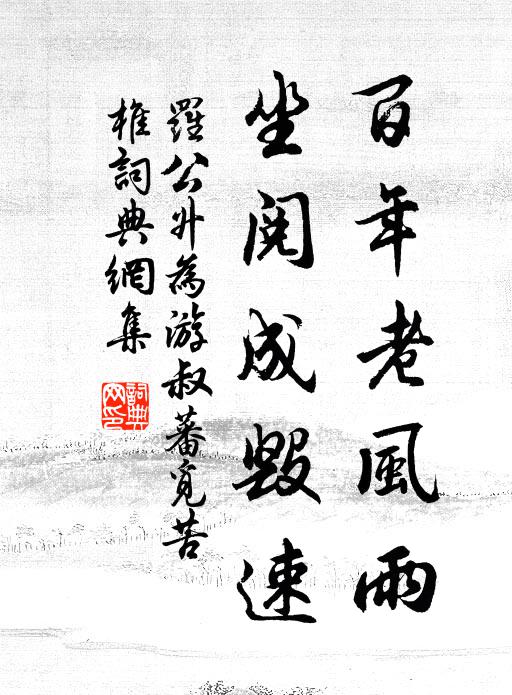 百年老風雨
坐閱成毀速
羅公升為游叔蕃覓苦
樵詞典網集
詞典
網印